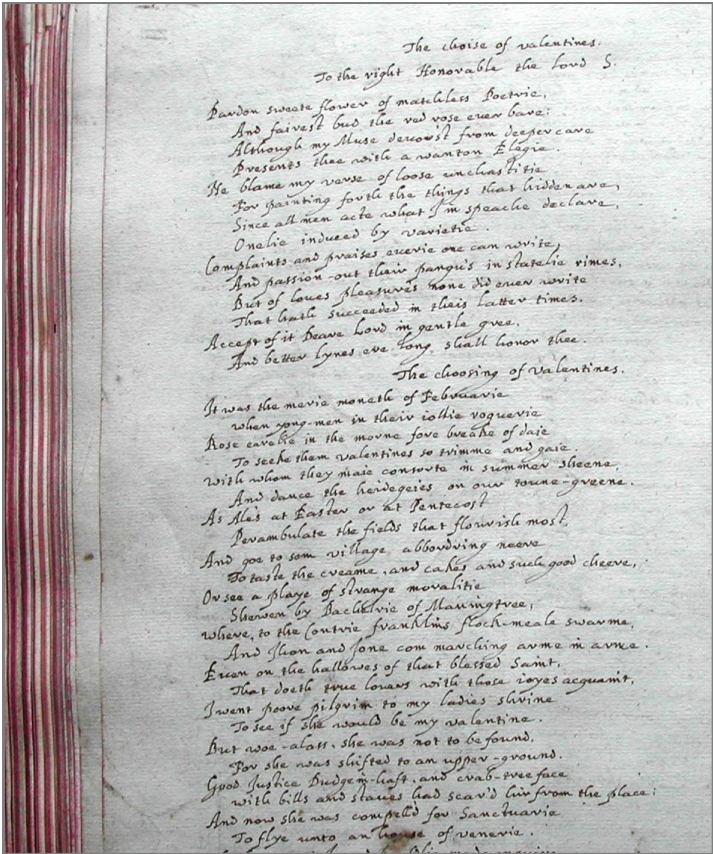 The choise of valentines.
To the right Honorable the lord S.
Pardon sweete flower of matchless Poetrie,
And fairest bud the red rose euer bare;
Although my Muse deuorc't from deeper care
Presents thee with a wanton Elegie.
Ne blame my verse of loose unchastitie
For painting forth the things that hidden are,
Since all men acte what I in speache declare,
Onelie induced by varietie.
Complaints and praises euerie one can write,
And passion-out their pangu's in statelie rimes,
But of loues pleasure's none did euer write
That hath succeeded in theis latter times.
Accept of it Deare Lord in gentle gree,
And better lynes ere long shall honor thee.
The choosing of valentines.
It was the merie moneth of Februarie
When yong-men in their iollie roguerie
Rose earelie in the morne fore breake of daie
To seeke them valentines so trimme and gaie.
With whom they maie consorte in summer sheene,
And dance the heidegeies on our toune-greene.
As Ale's at Easter or at Pentecost
Perambulate the fields that flourish most,
And goe to som village abbordring neere
To taste the creame, and cakes and such good cheere,
Or see a playe of strange moralitie
Shewen by Bachelrie of Maningtree,
Where, to the Contrie franklins flock-meale swarme,
And Jhon and Jone com marching arme in arme.
Euen on the hallowes of that blessed Saint,
That doeth true louers with those ioyes acquaint,
I went poore pilgrim to my ladies shrine
To see if she would be my valentine.
But woe-alass, she was not to be found,
For she was shifted to an upper-ground.
Good Justice Dudgein-haft, and crab-tree face
With bills and staues had scar'd hir from the place;
And now she was compell'd for Sanctuarie
To flye unto an house of venerie.